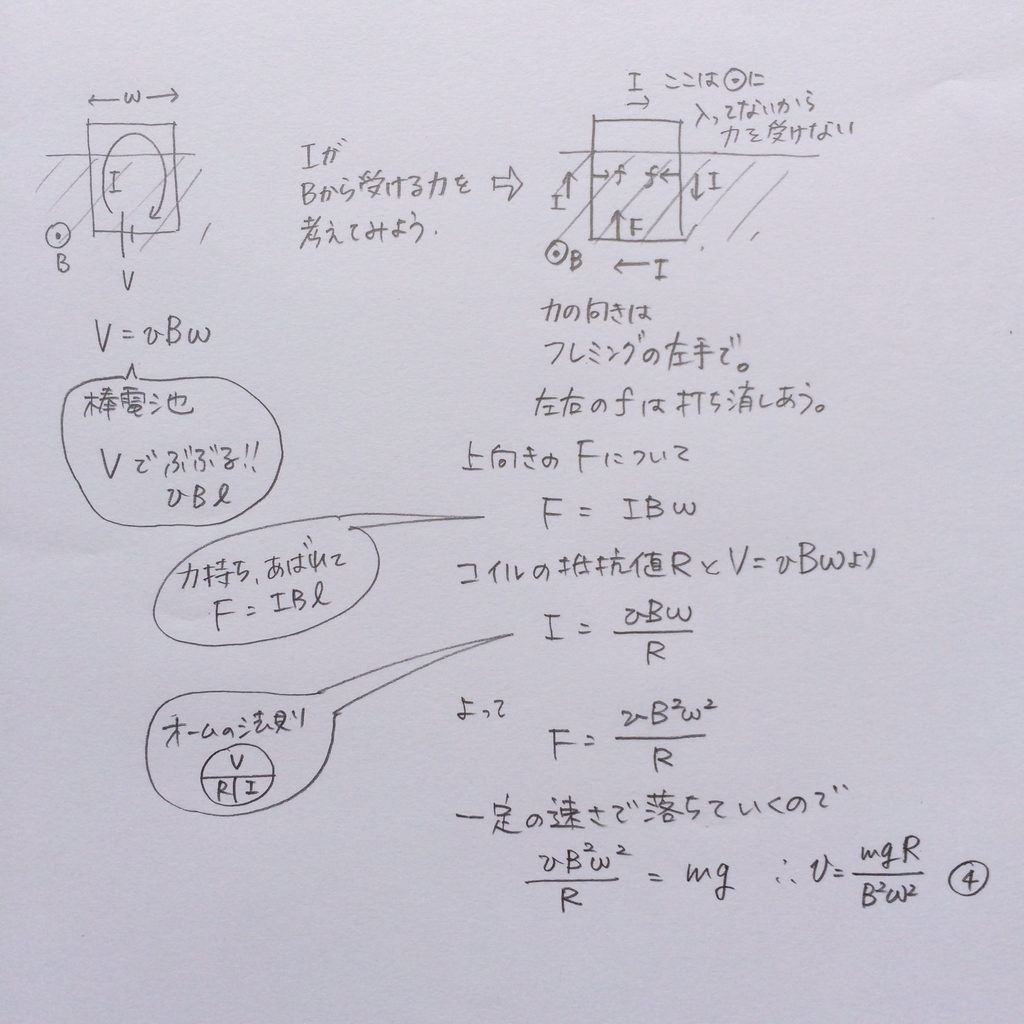 ← w →
I
B
V
V = vBw
棒電池
Vでぶぶる!!
vBl
Iが
Bから受ける力を
考えてみよう.
⇨
I ここは⊙に
→ 入ってないから
力を受けない
I f f I
F
⊙B ← I
力の向きは
フレミングの左手で。
左右のfは打ち消しあう。
上向きのFについて
F = IBw
力持ち、あばれて
F = IBl
コイルの抵抗値RとV=vBwより
I = vBw/R
オームの法則
V
R I
よって
F = vB²w²/R
一定の速さで落ちていくので
vB²w²/R = mg ∴ v = mgR/B²w² ④